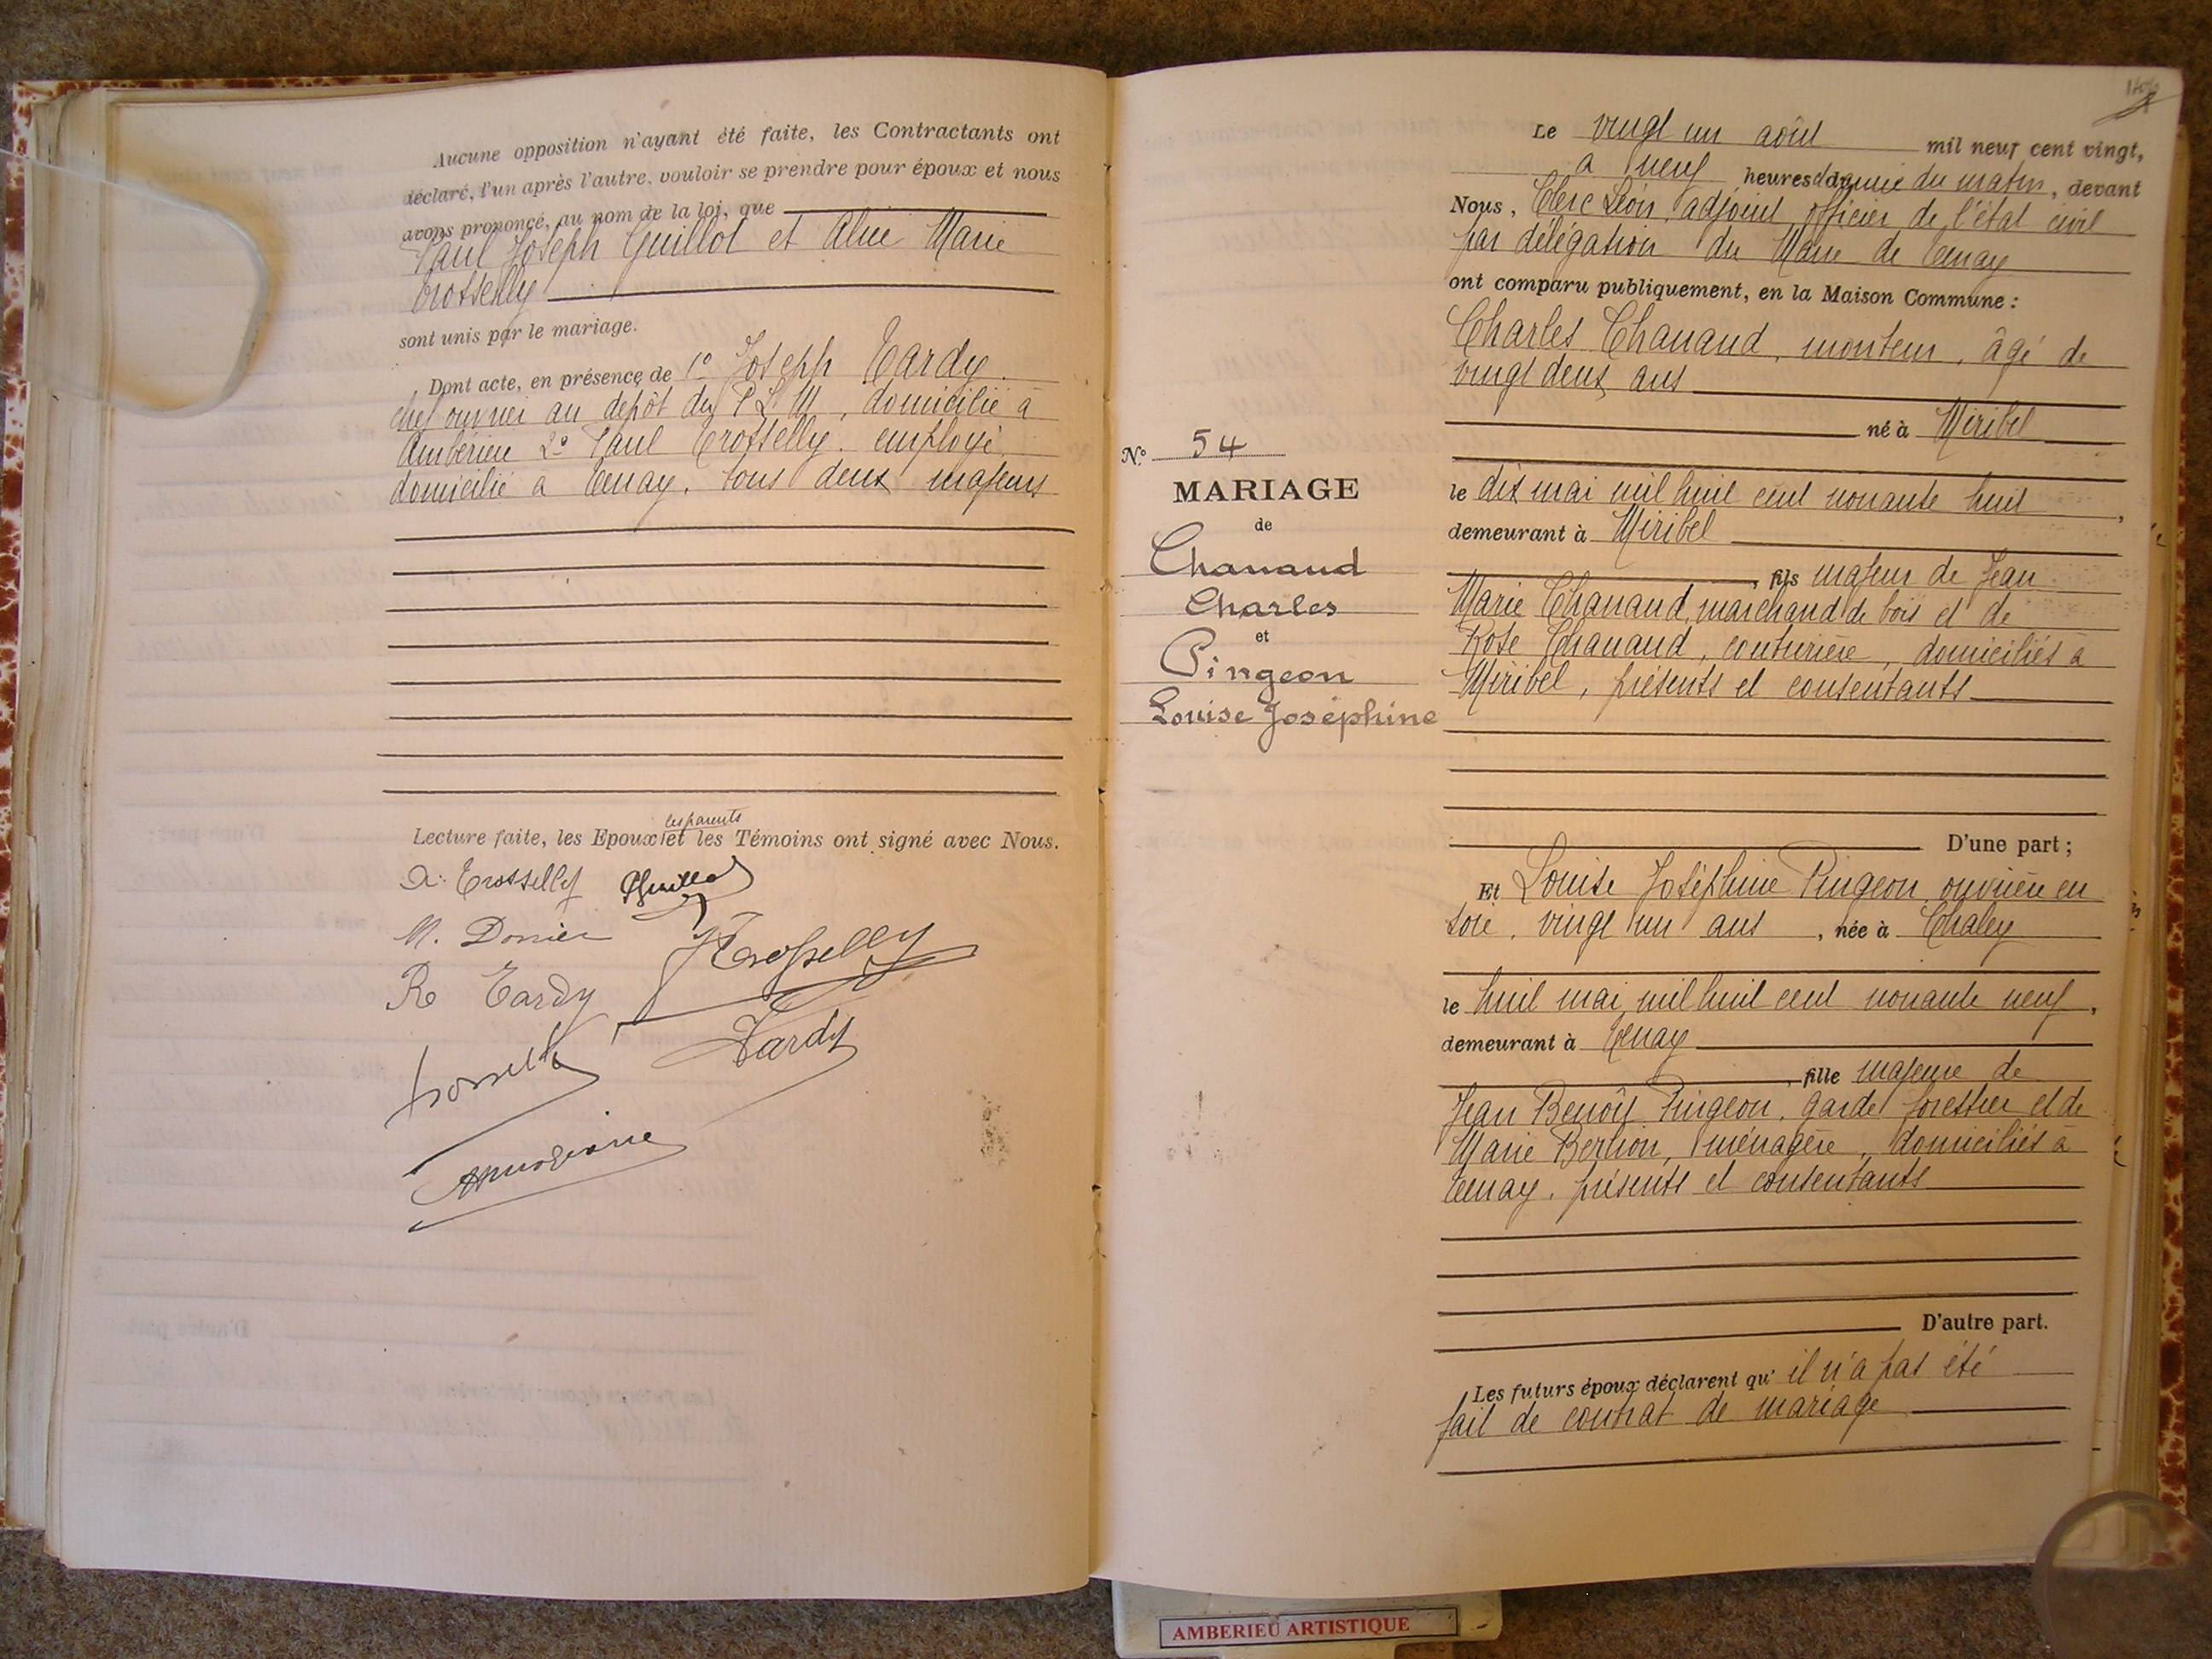 Aucune opposition n'ayant été faite, les Contractants ont
déclaré, l'un après l'autre, vouloir se prendre pour époux et nous
avons prononcé, au nom de la loi, que
Paul Joseph Guillot et Aline Marie
Trosselly
sont unis par le mariage.
Dont acte, en présence de 1º Joseph Tardy.
chef ouvrier au dépôt du P. L. M, domicilié à
Ambérieu 2º Paul Trosselly. employé.
domicilié à Tenay. tous deux majeurs
les parents
Lecture faite, les Epoux et les Témoins ont signé avec Nous.
A. Trosselly PGuillot
M. Donier
Trosselly
R Tardy
Tardy
Le vingt un août mil neuf cent vingt,
à neuf heures du matin, devant
Nous, Clerc Léon, adjoint officier de l'état civil
par délégation du Maire de Tenay
ont comparu publiquement, en la Maison Commune :
Charles Chanaud, monteur, âgé de
vingt deux ans
né à Miribel
le dix mai mil huit cent nonante huit,
demeurant à Miribel
, fils majeur de Jean
Marie Chanaud, marchand de bois et de
Rose Chanaud, couturière, domiciliés à
Miribel, présents et consentants
D'une part ;
Nº 54
MARIAGE
de
Chanaud
Charles
et
Pingeon
Louise Joséphine
Et Louise Joséphine Pingeon ouvrière en
soie, vingt un ans, née à Chaley
le huit mai mil huit cent nonante neuf,
demeurant à Tenay
, fille majeure de
Jean Benoît Pingeon, garde forestier et de
Marie Berlion, ménagère, domiciliés à
Tenay, présents et consentants
D'autre part.
Les futurs époux déclarent qu' il n'a pas été
fait de contrat de mariage
AMBERIEU ARTISTIQUE